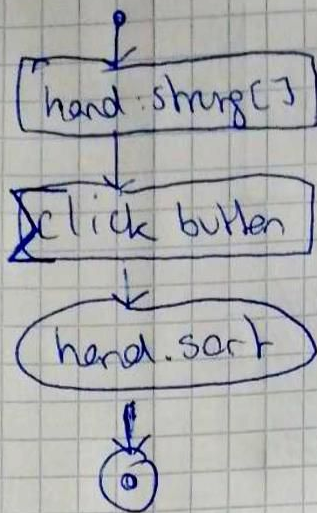 hand:string[]
click button
hand.sort